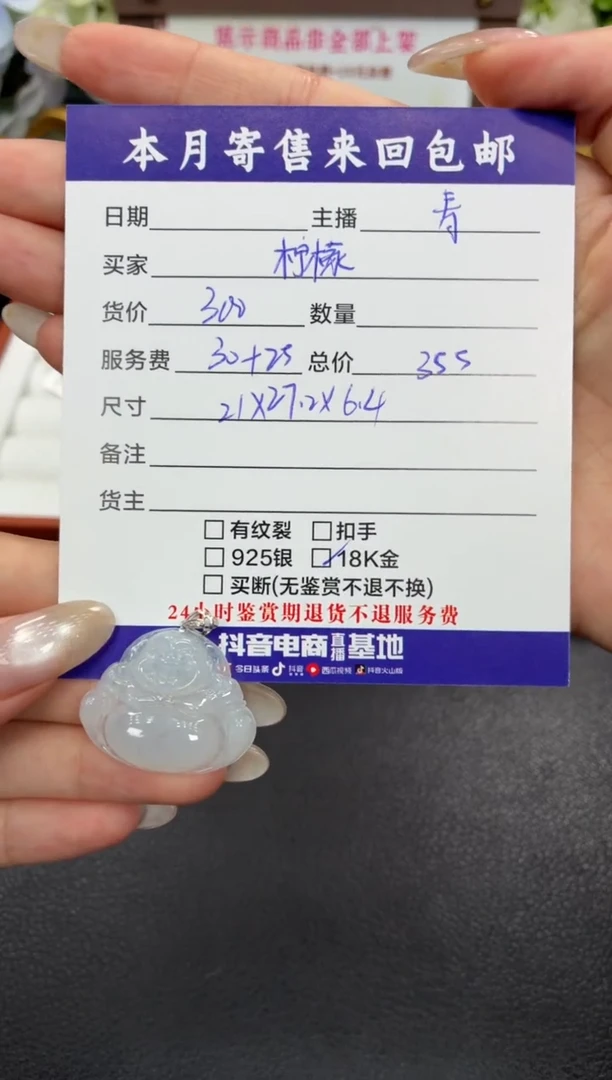 展示商品非全部上架
本月寄售来回包邮
日期 主播 青
买家 柠檬
货价 300 数量
服务费 30+25 总价 355
尺寸 21X27.2X6.4
备注
货主
有纹裂 扣手
925银 18K金
买断(无鉴赏不退不换)
24小时鉴赏期退货不退服务费
抖音电商直播基地
今日头条 抖音 西瓜视频 抖音火山版